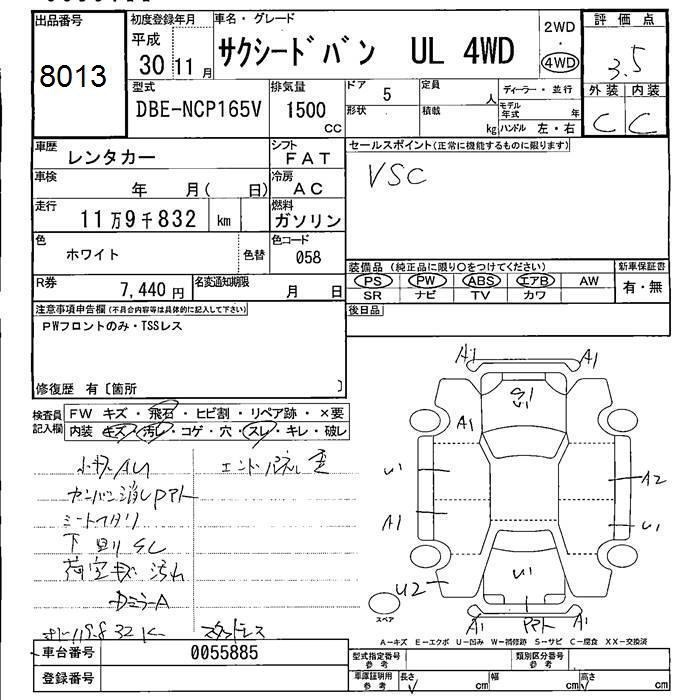 出品番号 初度登録年月 車名・グレード 2WD 評価点
8013 平成 30 11月 サクシードバン UL 4WD ・ 4WD 3.5
型式 排気量 ドア 5 定員 人 ディーラー・並行 外装 内装
DBE-NCP165V 1500 CC 形状 積載 kg モデル年式 年 C C
ハンドル 左・右
車歴 レンタカー シフト FAT セールスポイント(正常に機能するものに限ります)
車検 年 月( 日) 冷房 AC VSC
走行 11万9千832 km 燃料 ガソリン
色 ホワイト 色替 色コード 058
装備品 (純正品に限り〇をつけてください) 新車保証書
R券 7,440円 名変通知期限 月 日 PS PW ABS エアB AW 有・無
SR ナビ TV カワ
注意事項申告欄(不具合内容等は具体的に記入して下さい) 後日品
PWフロントのみ・TSSレス
修復歴 有〔箇所 〕
検査員記入欄 FW キズ・飛石・ヒビ割・リペア跡・×要
内装 キズ・汚レ・コゲ・穴・スレ・キレ・破レ
小キズAU エンドパネル歪
カンバン消しPアト
シートヘタリ
下廻りSC
荷室キズ汚れ
DミラーA
スタッドレス
A1 A1
U1
A1
U1 A2
A1 U1
U2 U1
A1 Pアト A1
スペア
A-キズ E-エクボ U-凹み W-補修跡 S-サビ C-腐食 XX-交換済
車台番号 0055885 型式指定番号 参考 類別区分番号 参考
登録番号 車庫証明用 参考 長さ cm 幅 cm 高さ cm